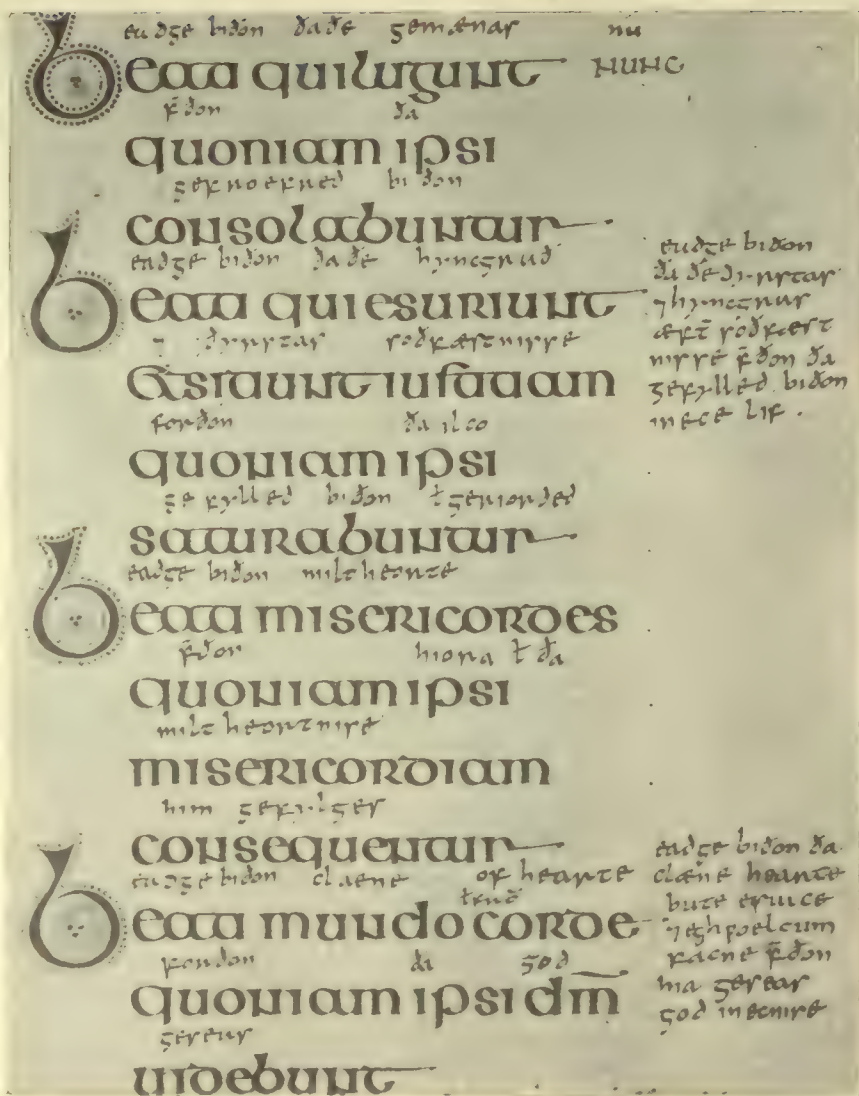 eadge biðon ða ðe gemænas nu
Beati qui lugunt nunc
f̄ðon ða
quoniam ipsi
gefroefred biðon
consolabuntur
eadge biðon ða ðe hyncgrað
Beati qui esuriunt
⁊ ðyrstas soðfæstnisse
et sitiunt iustitiam
forðon ða ilco
quoniam ipsi
gefylled biðon ł geriorded
saturabuntur
eadge biðon miltheorte
Beati misericordes
f̄ðon hiora ł ða
quoniam ipsi
miltheortnise
misericordiam
him gefylges
consequentur
eadge biðon claene of hearte
Beati mundo corde
forðon ða god
quoniam ipsi dm̄
geseas
uidebunt
eadge biðon
ða ðe ðyrstas
⁊ hyncgras
æft̄ soðfæst
nisse f̄ðon ða
gefylled biðon
in ece lif .
eadge biðon ða
clæne hearte
buta esuice
⁊ eghwoelcum
facne f̄ðon
hia geseas
god in ecnise